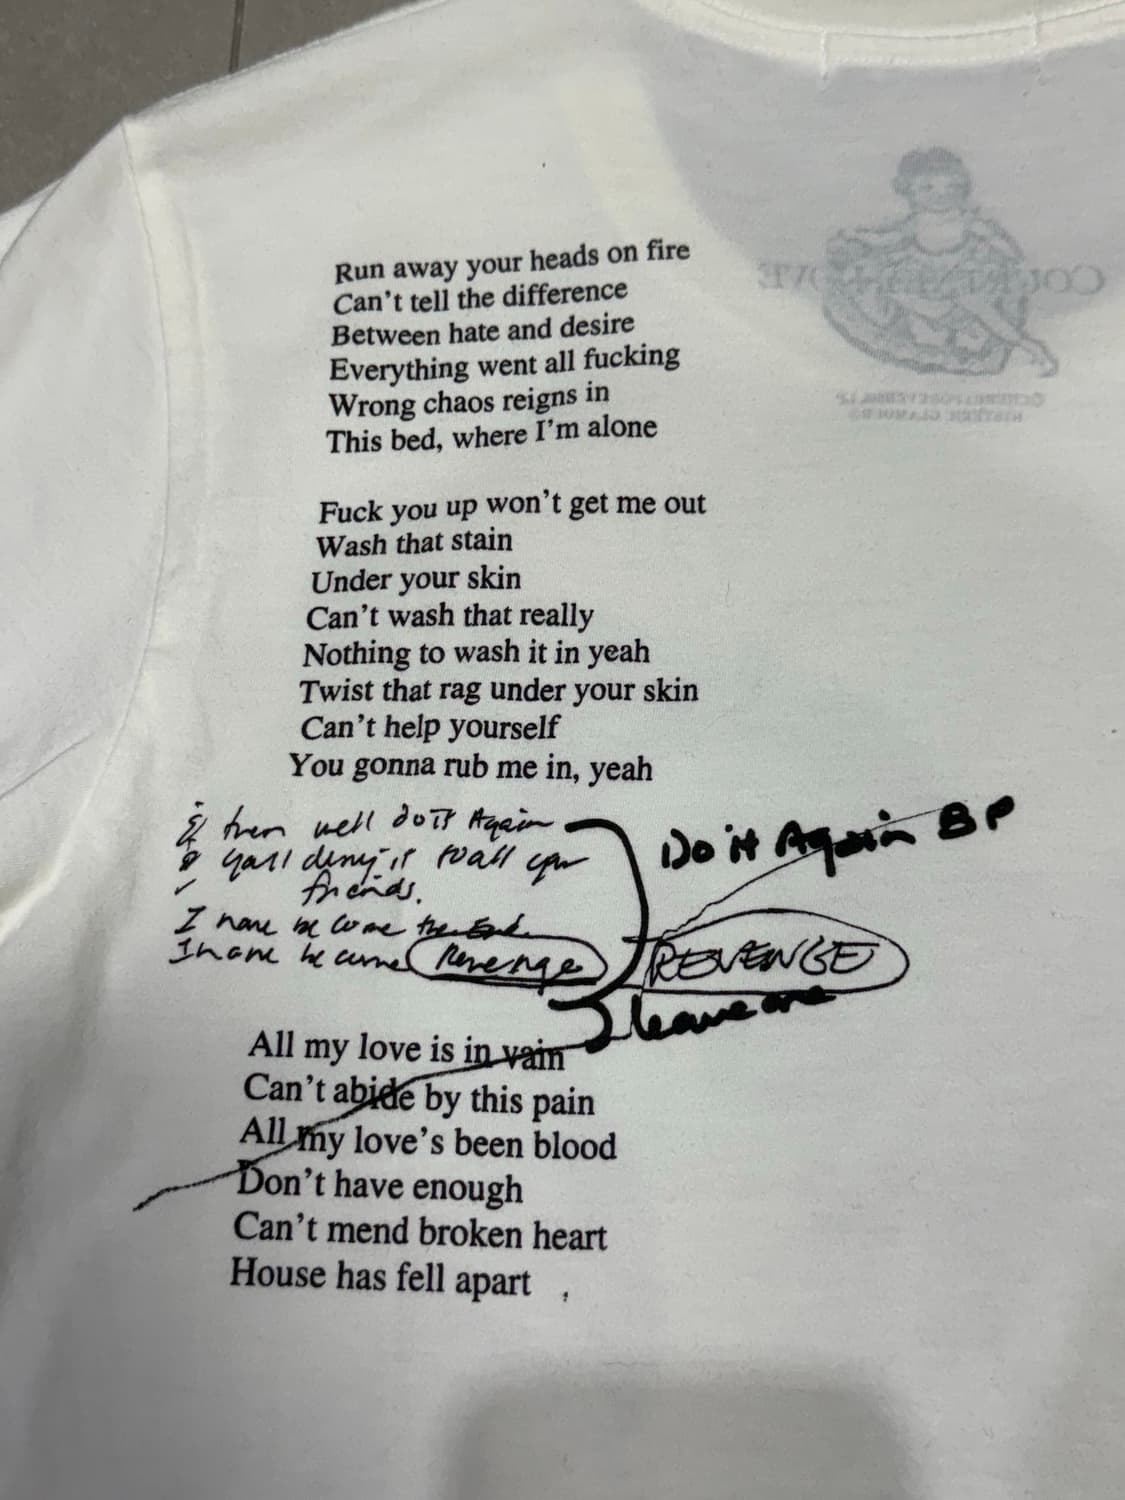 Run away your heads on fire
Can't tell the difference
Between hate and desire
Everything went all fucking
Wrong chaos reigns in
This bed, where I'm alone
Fuck you up won't get me out
Wash that stain
Under your skin
Can't wash that really
Nothing to wash it in yeah
Twist that rag under your skin
Can't help yourself
You gonna rub me in, yeah
& then well do it Again
Do it Again BP
youll deny it to all your
friends.
I have become the End
I have become Revenge
REVENGE
leave one
All my love is in vain
Can't abide by this pain
All my love's been blood
Don't have enough
Can't mend broken heart
House has fell apart
COURTNEY LOVE